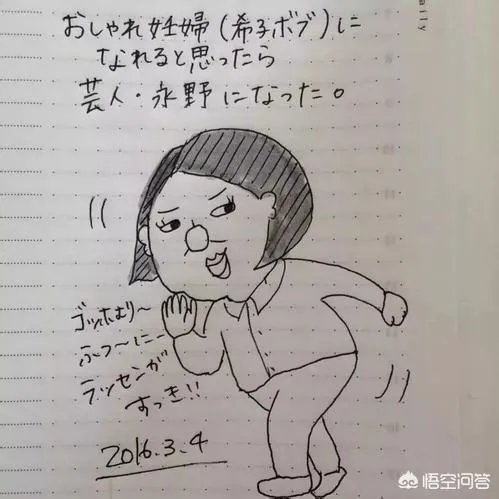 おしゃれ妊婦(希子ボブ)に
なれると思ったら
芸人・永野になった。
ゴッホより〜
ふつ〜に〜
ラッセンが
すっき!!
2016.3.4
悟空问答